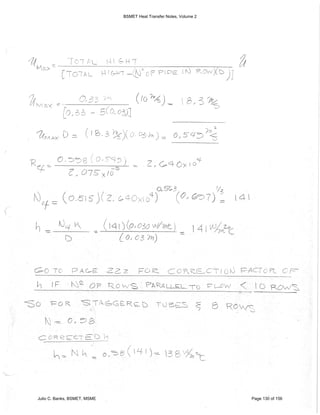 BSMET Heat Transfer Notes, Volume 2
U_MAX = TOTAL HIGHT / [TOTAL HIGHT - (Nº OF PIPE IN ROW)(D)]
U_MAX = 0.33 m / [0.33 - 5(0.03)] (10 m/s) = 18.3 m/s
U_MAX D = (18.3 m/s)(0.03 m) = 0.549 m²/s
= 2.640 x 10⁴
N = (0.515)(2.640x10⁴)^0.563 (0.697)^1/3 = 141
h = N K / D = (141)(0.030 W/m°C) / (0.03 m) = 141 W/m²°C
GO TO PAGE 222 FOR CORRECTION FACTOR OF
h IF Nº OF ROWS PARALLEL TO FLOW < 10 ROWS
SO FOR STAGGERED TUBES & 8 ROWS
N = 0.98
CORRECTED h
h = N h = 0.98 (141) = 138 W/m²°C
Julio C. Banks, BSMET, MSME
Page 130 of 159